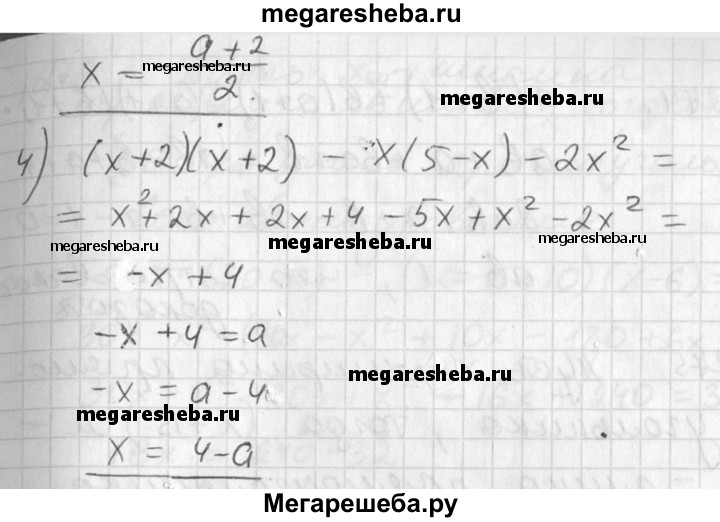 megaresheba.ru
x = (a + 2)/2.
megaresheba.ru
megaresheba.ru
4) (x+2)(x+2) - x(5-x) - 2x² =
= x² + 2x + 2x + 4 - 5x + x² - 2x² =
megaresheba.ru megaresheba.ru megaresheba.ru
= -x + 4
-x + 4 = a
-x = a - 4
megaresheba.ru
megaresheba.ru
x = 4-a
Мегарешеба.ру